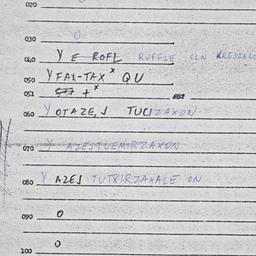 020
030 0
040 Y E ROFL RUFFLE CLN
050 Y FAX-TAX* QU
051 +* 052
060 Y OTAZE, J TUCIZAXON
070 Y AZEJTUEMIRZAXON
080 Y AZEJ TUTSIRZAXALE ON
090 0
0
100